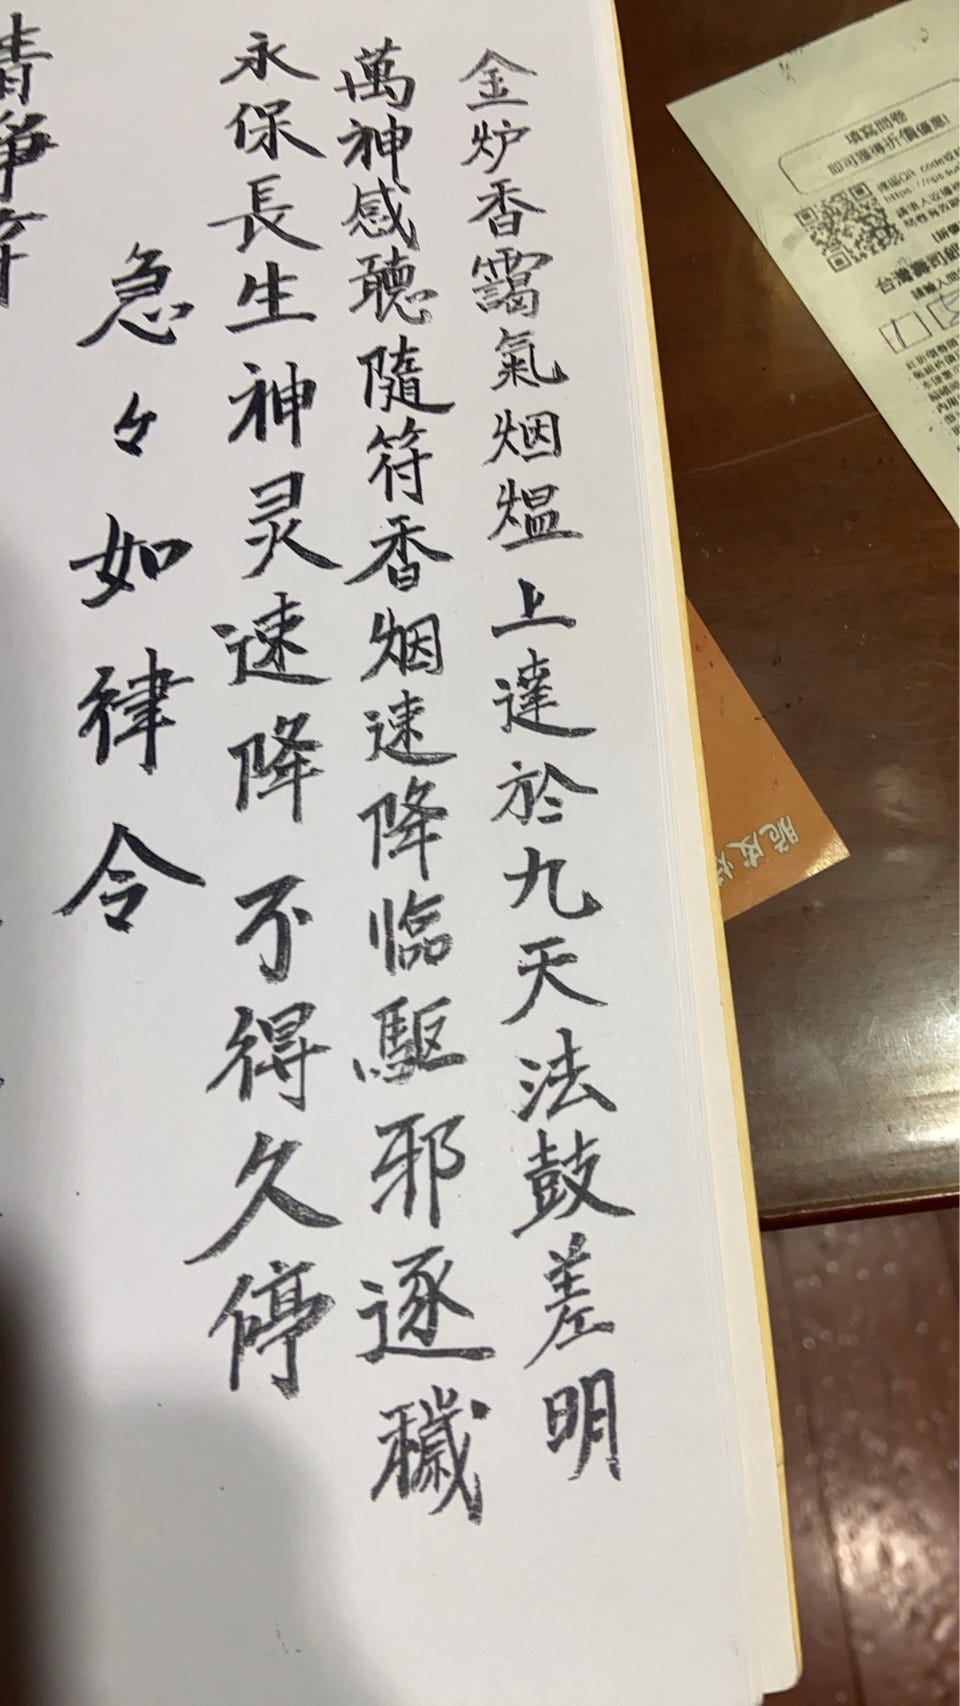 金炉香靄氣烟熅上達於九天法鼓差明
萬神感聽隨符香烟速降临驅邪逐穢
永保長生神灵速降不得久停
急々如律令
填寫問卷
即可獲得折價優惠!
脆皮